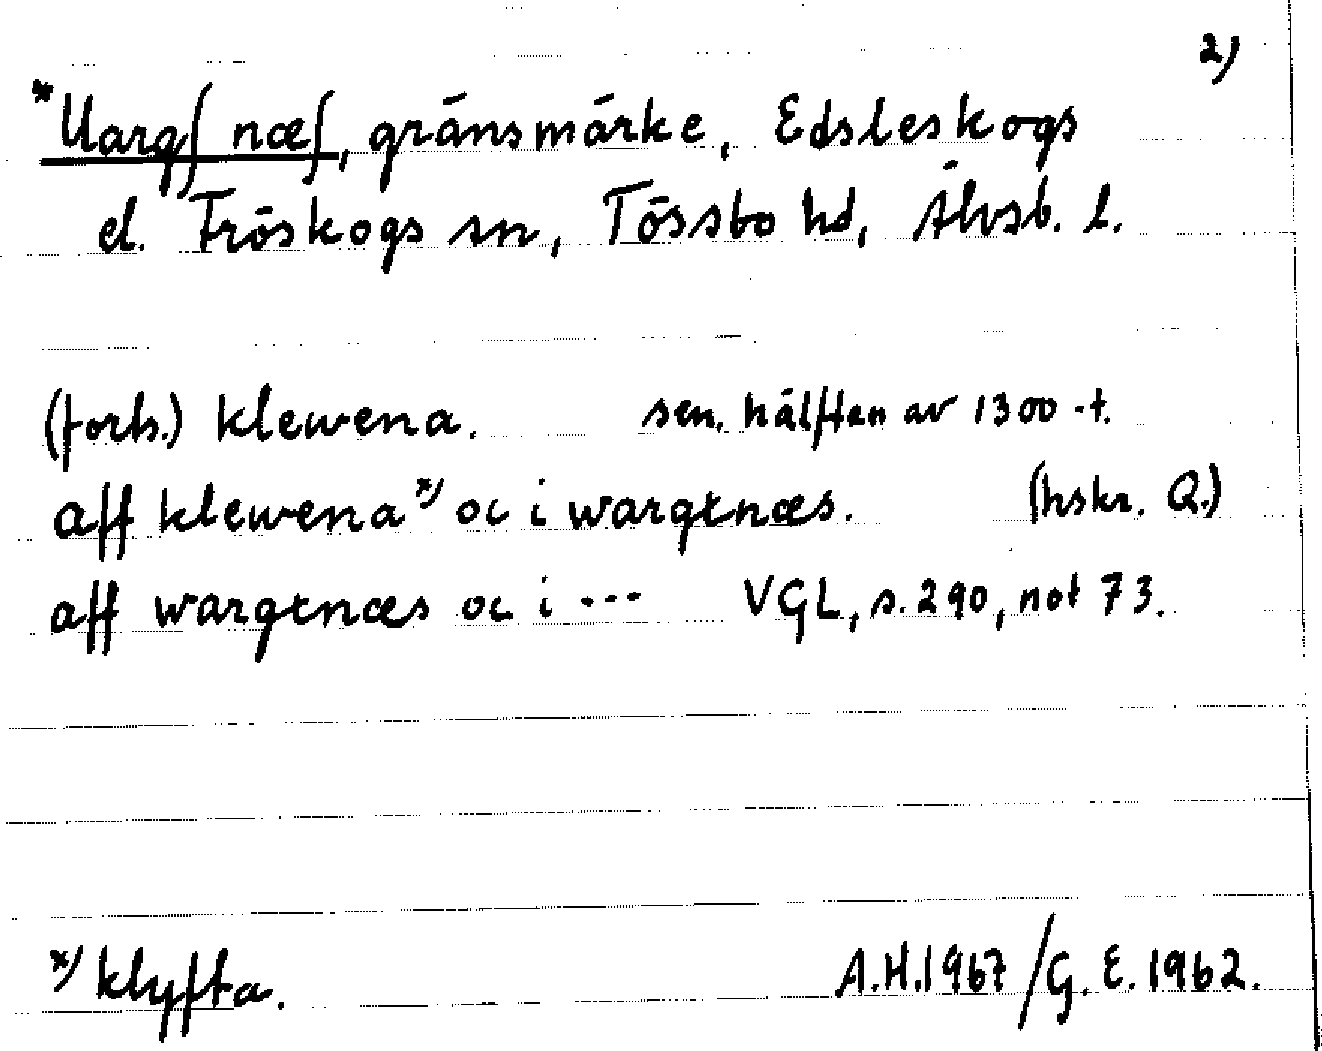 2)
*Uargſ næſ, gränsmärke, Edsleskogs
el. Fröskogs sn, Tössbo hd, Älvsb. l.
(forts.) klewena. sen. hälften av 1300-t.
aff klewena x) oc i wargtnæs. (hskr. Q.)
aff wargtnæs oc i --- VGL, s. 290, not 73.
x) klyfta. A.H. 1967 / G. E. 1962.